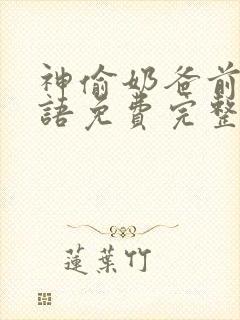 神偷奶爸前
語免費完整
蓮葉竹